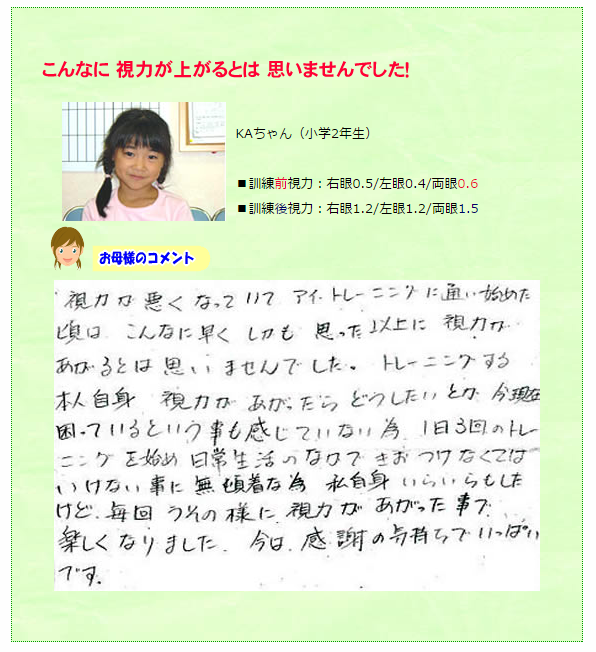 こんなに 視力が上がるとは 思いませんでした!
KAちゃん（小学2年生）
■訓練前視力：右眼0.5/左眼0.4/両眼0.6
■訓練後視力：右眼1.2/左眼1.2/両眼1.5
お母様のコメント
視力が悪くなっていて アイ・トレーニングに通い始めた
頃は、こんなに早く しかも 思った以上に 視力が
あがるとは思いませんでした。トレーニングする
本人自身 視力が あがったら どうしたいとか 今現在
困っているという事も感じていない為 1日3回のトレー
ニングを始め 日常生活のなかで きをつけなくては
いけない事に無頓着な為 私自身 いらいらもした
けど、毎回 うその様に 視力が あがった事で
楽しくなりました。今は、感謝の気持ちでいっぱい
です。